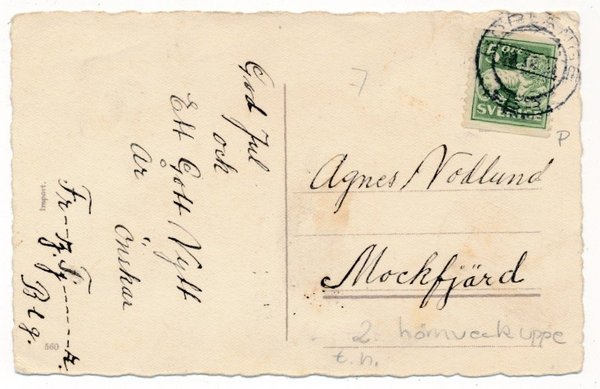 God Jul
och
Ett Gott Nytt
år
önskar
Blg.
Import.
560
7
SVERIGE
P
Agnes Nodlund
Mockfjärd
2. hörnveck uppe
t.h.